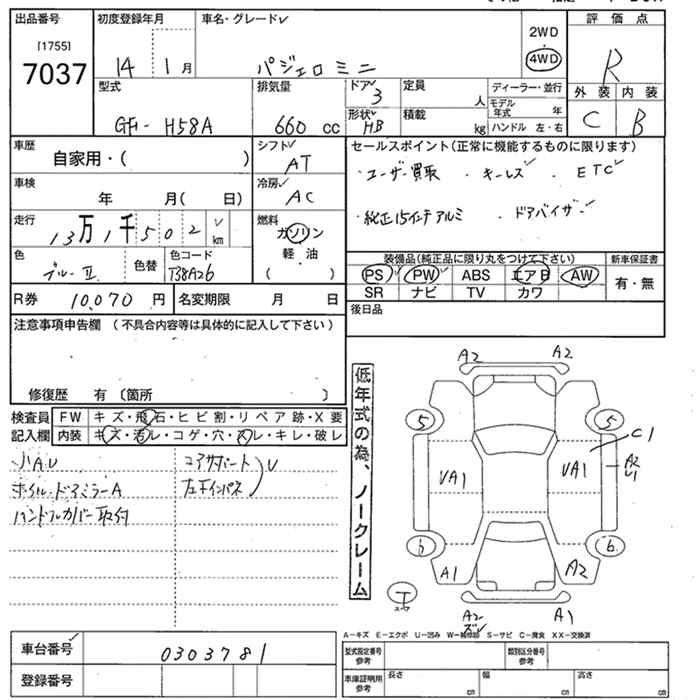 出品番号
[1755]
7037
初度登録年月
14 1月
車名・グレード
パジェロミニ
2WD
4WD
評価点
R
外装 内装
C B
型式
GF- H58A
排気量
660 cc
ドア
3
形状
HB
定員
人
積載
kg
ディーラー・並行
モデル年式 年
ハンドル 左・右
車歴
自家用・( )
シフト
AT
セールスポイント(正常に機能するものに限ります)
・ユーザー買取 ・キーレス ・ETC
・純正15インチアルミ ・ドアバイザー
車検
年 月( 日)
冷房
AC
走行
13万1千502 km
燃料
ガソリン
軽・油
( )
色
ブルーⅡ
色替
色コード
T38A26
装備品(純正品に限り丸をつけて下さい)
PS PW ABS エアB AW
SR ナビ TV カワ
新車保証書
有・無
R券 10,070 円
名変期限 月 日
後日品
注意事項申告欄 (不具合内容等は具体的に記入して下さい)
修復歴 有〔箇所 〕
検査員記入欄
FW キズ・飛石・ヒビ割・リペア跡・X要
内装 キズ・汚レ・コゲ・穴・スレ・キレ・破レ
小AU
ホイル・ドアミラーA
ハンドルカバー取付
コアサポート
左下インパネ
U
低年式の為、ノークレーム
A2 A2
5 5
C1
VA1 VA1
A2
U1
6 6
A1 A2
エ
A2 A1
A-キズ E-エクボ U-凹み W-補修跡 S-サビ C-腐食 XX-交換済
車台番号
0303781
登録番号
型式指定番号
参考
類別区分番号
参考
車庫証明用
参考
長さ cm
幅 cm
高さ cm